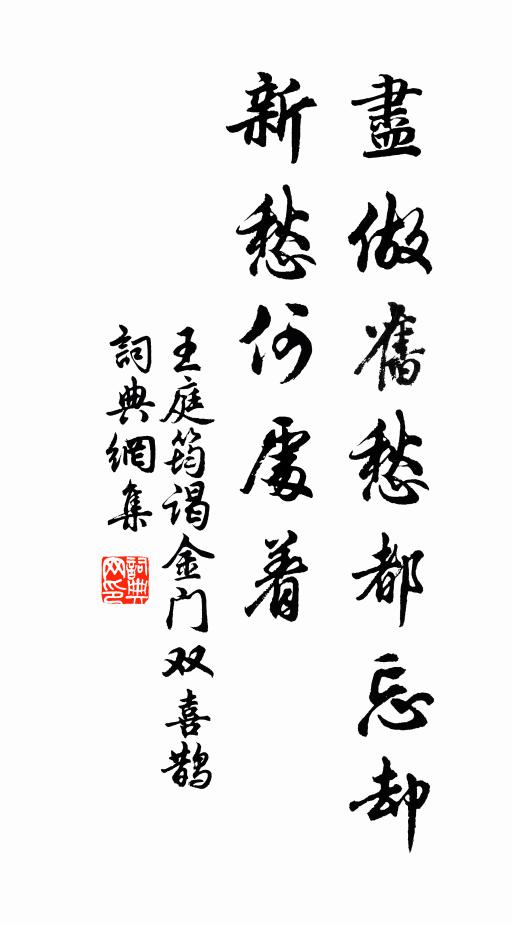 盡做舊愁都忘却
新愁何處着
王庭筠谒金门双喜鹊
詞典網集
詞典網印